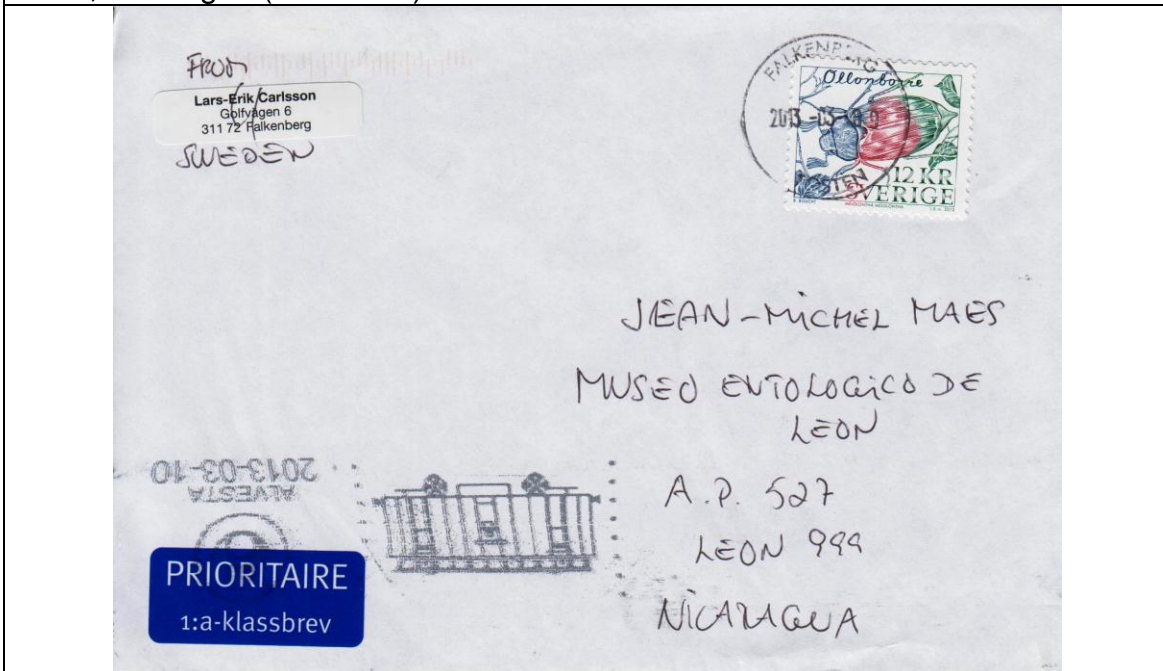 FROM
Lars-Erik Carlsson
Golfvägen 6
311 72 Falkenberg
SWEDEN
FALKENBERG
2013
POSTEN
Ollonborre
12 KR
SVERIGE
JEAN-MICHEL MAES
MUSEO ENTOLOGICO DE
LEON
A.P. 527
LEON 999
NICARAGUA
2013-03-10
ALVESTA
PRIORITAIRE
1:a-klassbrev